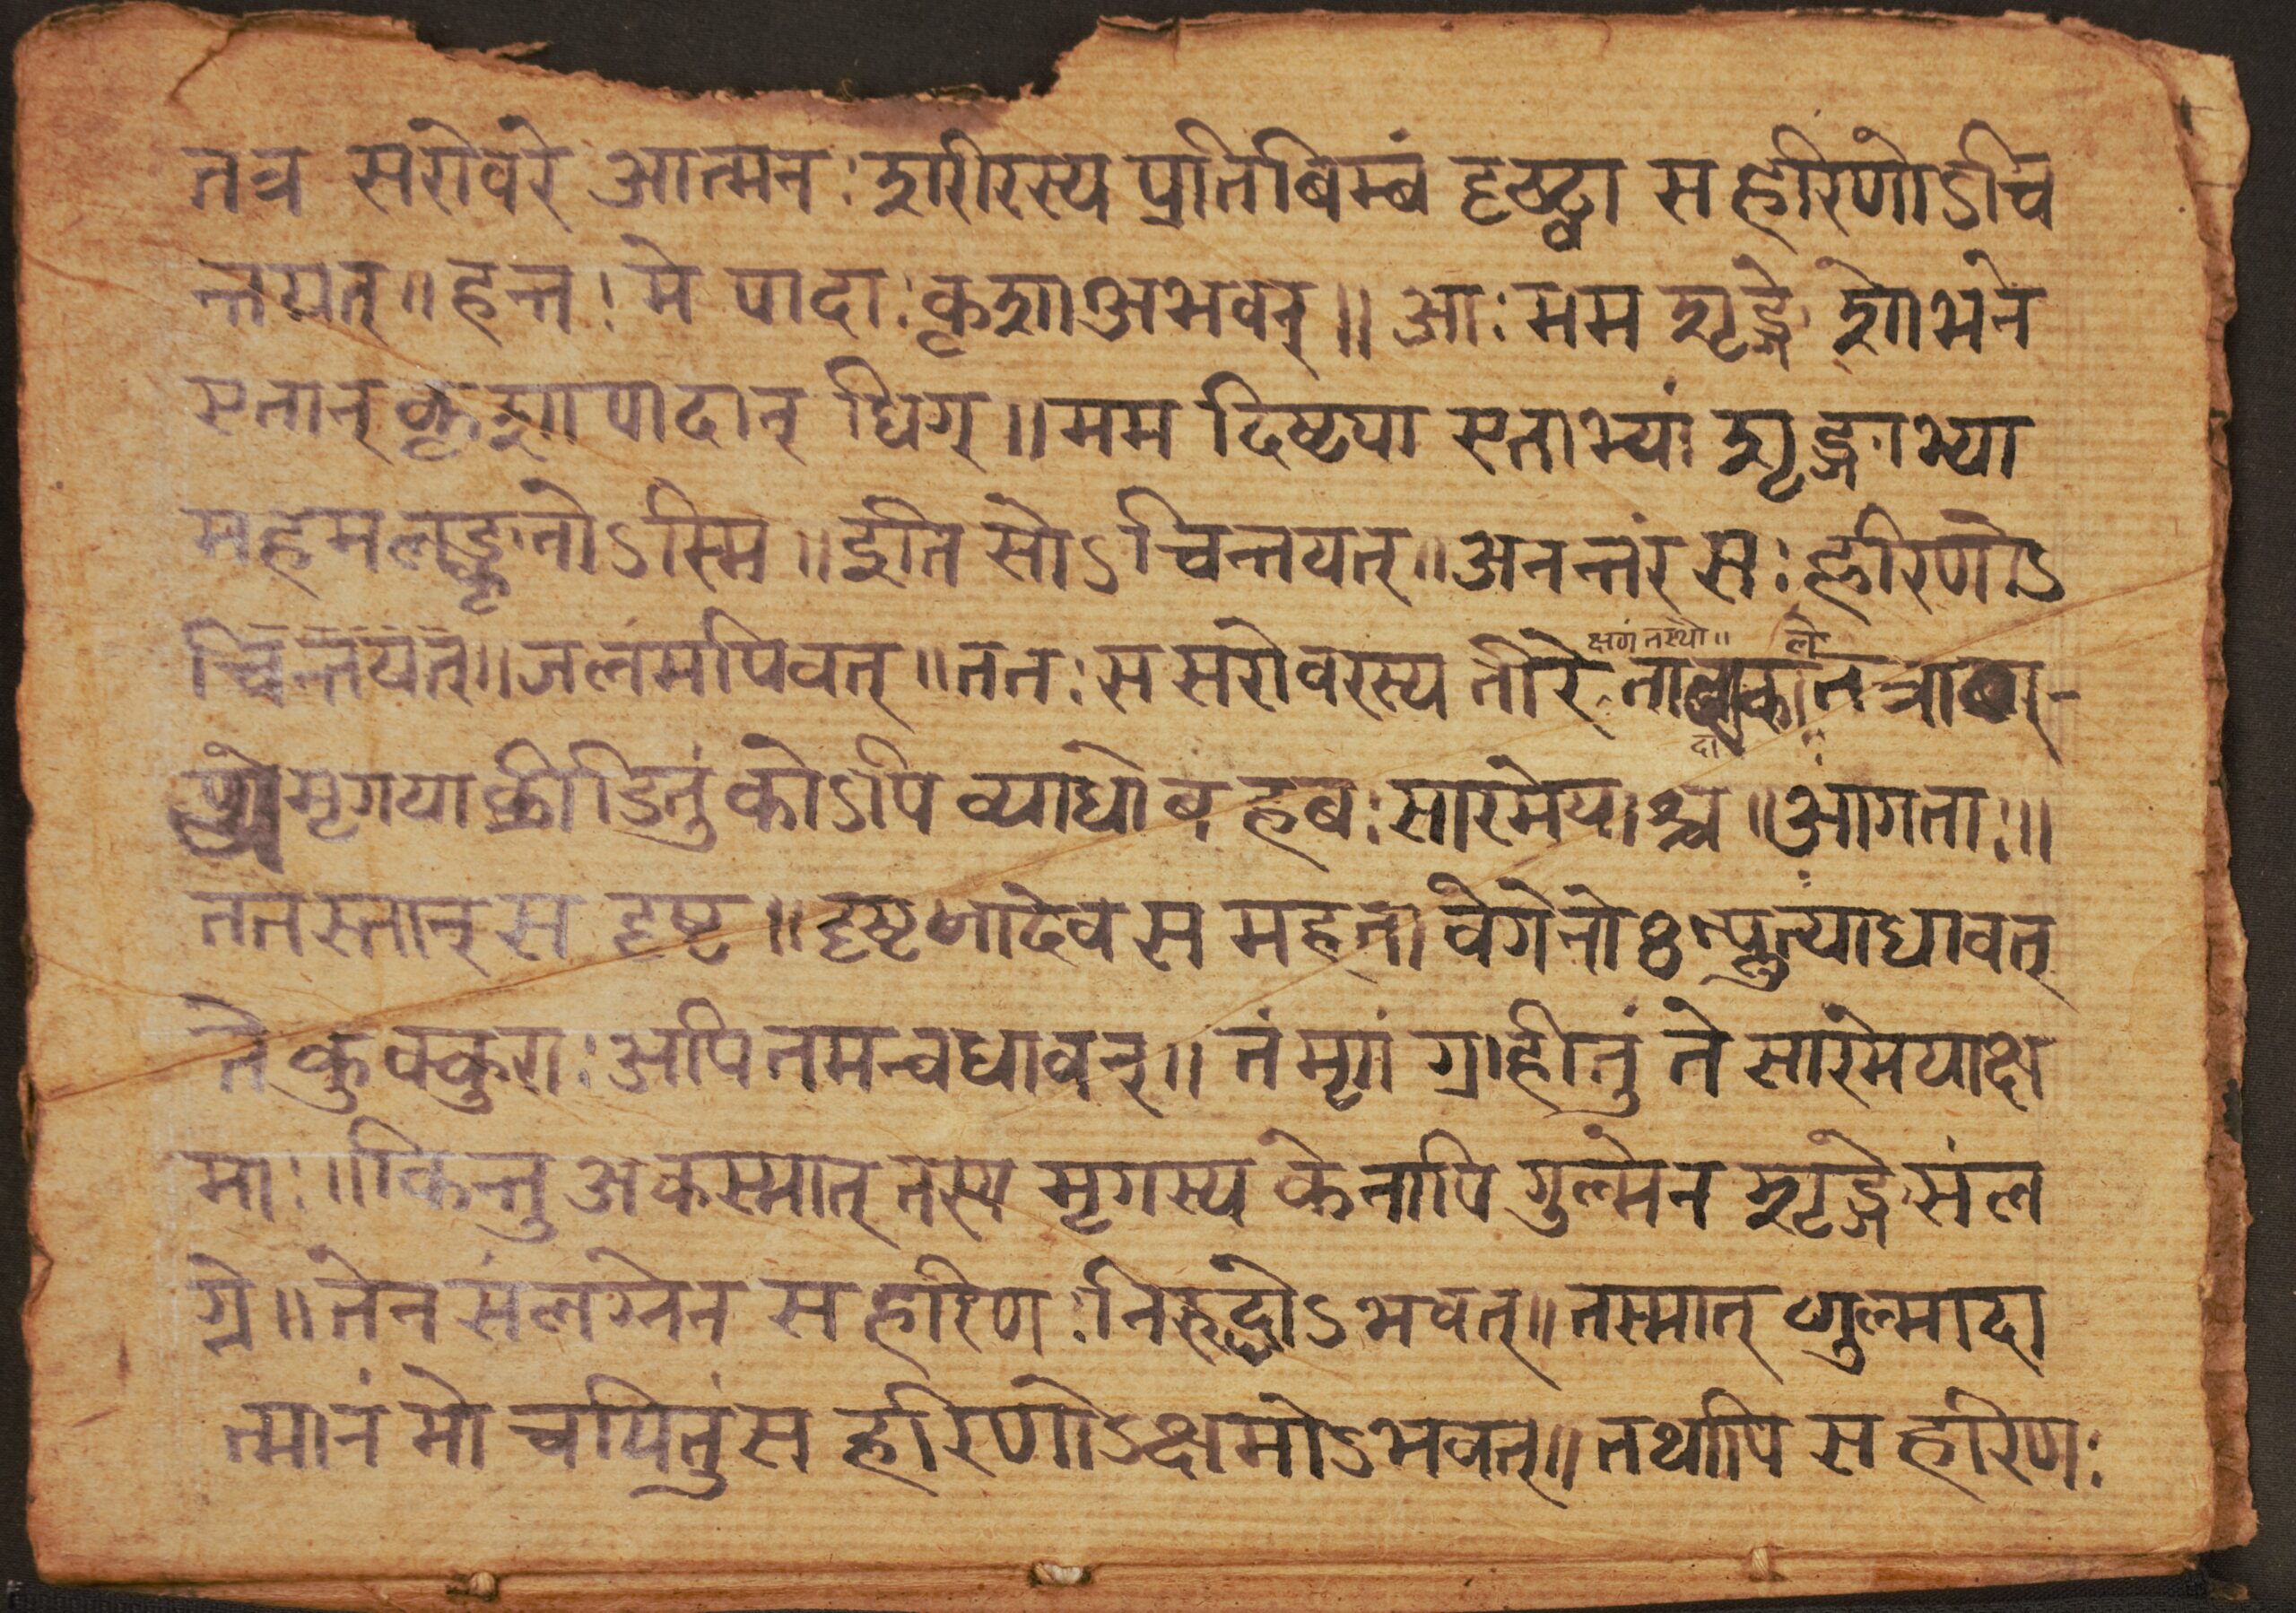 तत्र सरोवरे आत्मनः शरीरस्य प्रतिबिम्बं दृष्ट्वा स हरिणोऽचि
न्तयत् ॥ हन्त ! मे पादाः कृशा अभवन् ॥ आः मम शृङ्गे शोभने
एतान् कृशा पादान् धिग् ॥ मम दिष्ट्या एताभ्यां शृङ्गाभ्या
महमलङ्कृतोऽस्मि ॥ इति सोऽचिन्तयत् ॥ अनन्तरं सः हरिणोऽ
चिन्तयत् ॥ जलमपिवत् ॥ ततः स सरोवरस्य तीरे
क्षणं तस्थौ ॥
मृगया क्रीडितुं कोऽपि व्याधो बहबः सारमेयाश्च ॥ आगताः ॥
ततस्तान् स दृष्ट ॥ देव स महता वेगेनो त्प्लुत्याधावत्
ते कुक्कुराः अपि तमन्वधावन् ॥ तं मृगं ग्रहीतुं ते सारमेयाक्ष
माः ॥ किन्तु अकस्मात् तस्य मृगस्य केनापि गुल्मेन शृङ्गे संल
ग्ने ॥ तेन संलग्नेन स हरिणः निरुद्धोऽभवत् ॥ तस्मात् गुल्मादा
त्मानं मोचयितुं स हरिणोऽक्षमोऽभवत् ॥ तथापि स हरिणः